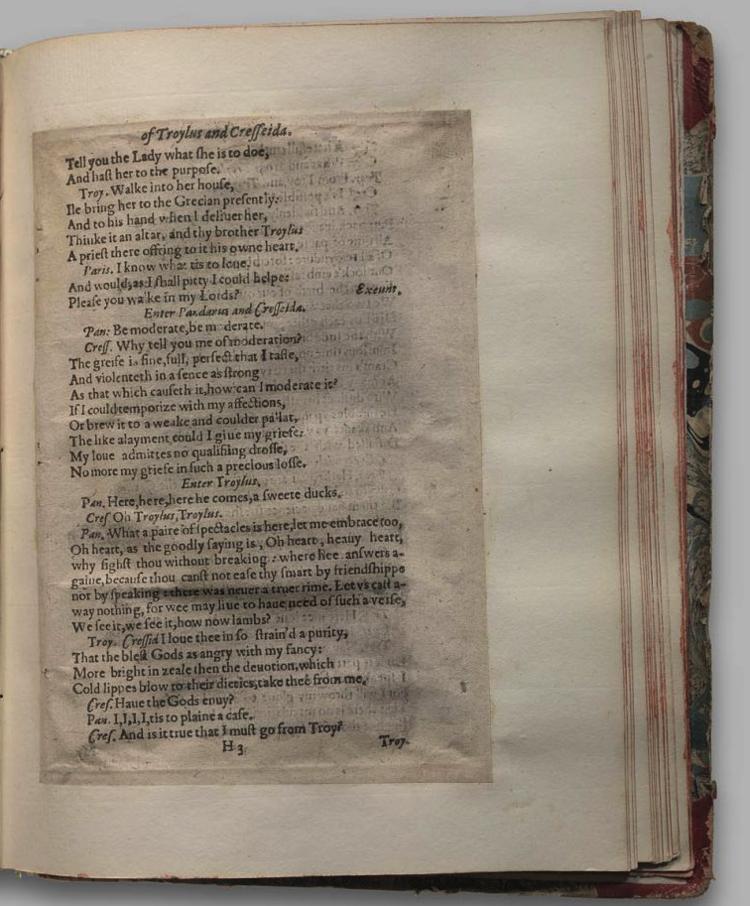 of Troylus and Cresseida.
Tell you the Lady what she is to doe,
And hast her to the purpose.
Troy. Walke into her house,
Ile bring her to the Grecian presently:
And to his hand when I deliuer her,
Thinke it an altar, and thy brother Troylus
A priest there offring to it his owne heart.
Paris. I know what tis to loue,
And would, as I shall pitty I could helpe:
Please you walke in my Lords? Exeunt.
Enter Pandarus and Cresseida.
Pan: Be moderate, be moderate.
Cress. Why tell you me of moderation?
The greife is fine, full, perfect that I taste,
And violenteth in a sence as strong
As that which causeth it, how can I moderate it?
If I could temporize with my affections,
Or brew it to a weake and coulder pallat,
The like alayment could I giue my griefe:
My loue admittes no qualifiing drosse,
No more my griefe in such a precious losse.
Enter Troylus.
Pan. Here, here, here he comes, a sweete ducks.
Cres. Oh Troylus, Troylus.
Pan. What a paire of spectacles is here, let me embrace too,
Oh heart, as the goodly saying is, Oh heart, heauy heart,
why sighst thou without breaking: where hee answers a-
gaine, because thou canst not ease thy smart by friendshippe
nor by speaking: there was neuer a truer rime. Let vs cast a-
way nothing, for wee may liue to haue need of such a verse,
We see it, we see it, how now lambs?
Troy. Cressid I loue thee in so strain'd a purity,
That the blest Gods as angry with my fancy:
More bright in zeale then the deuotion, which
Cold lippes blow to their dieties, take thee from me.
Cres. Haue the Gods enuy?
Pan. I, I, I, I, tis to plaine a case.
Cres. And is it true that I must go from Troy?
H 3 Troy.